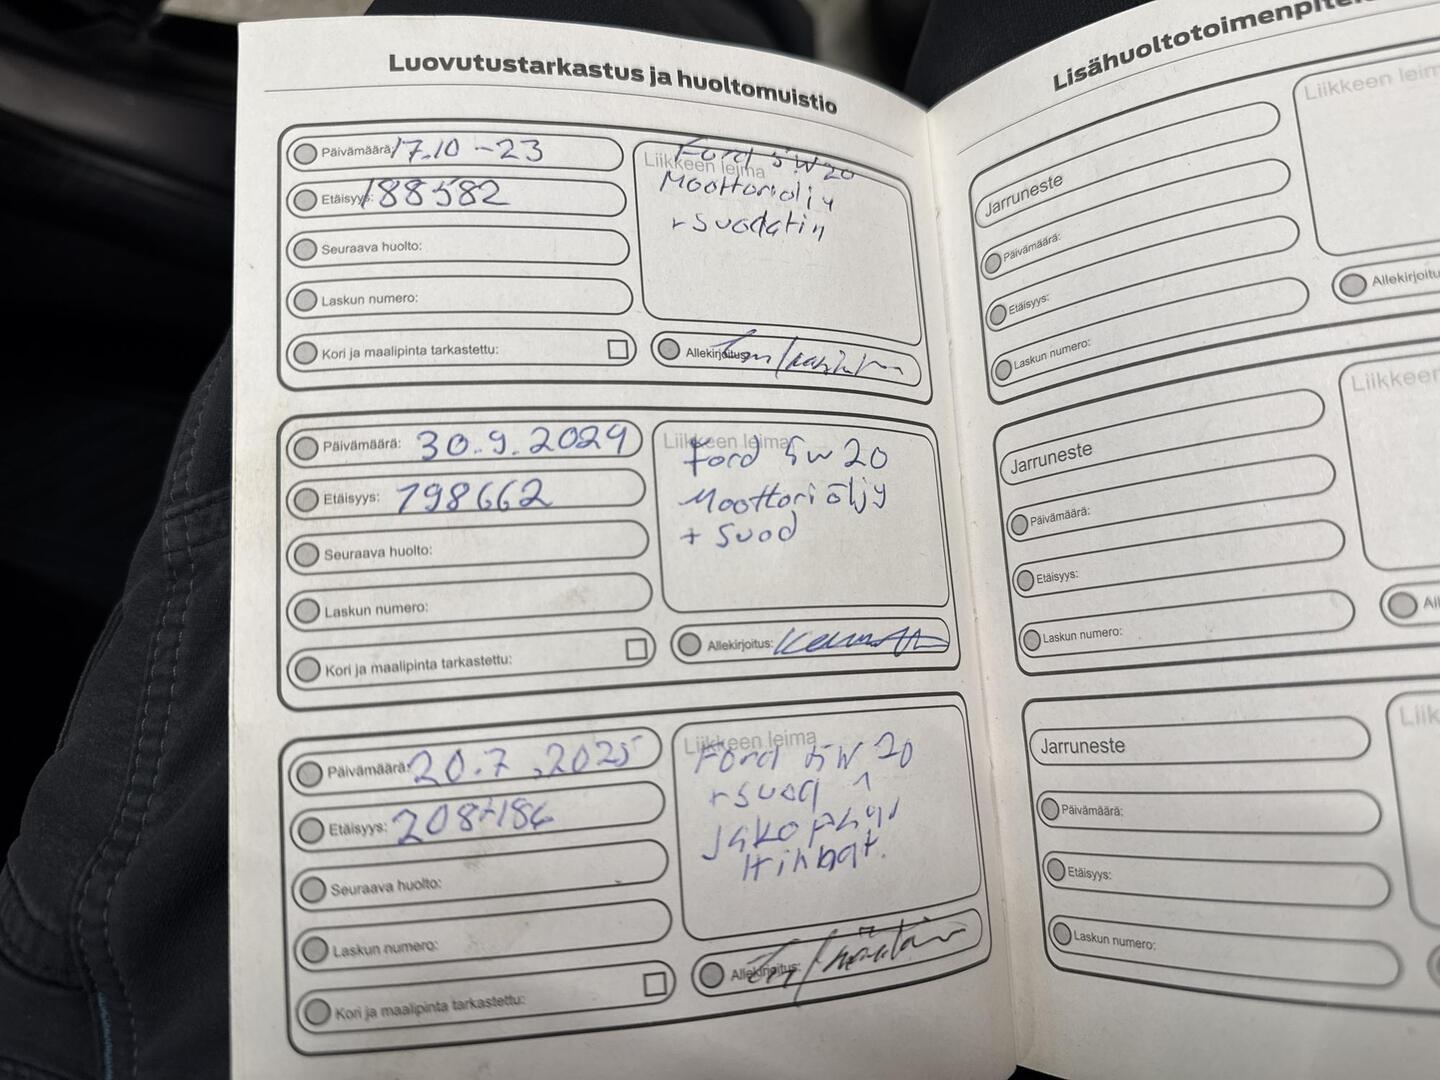 Luovutustarkastus ja huoltomuistio
Päivämäärä: 17.10-23
Etäisyys: 188582
Seuraava huolto:
Laskun numero:
Kori ja maalipinta tarkastettu:
Liikkeen leima
Ford 5W20
Moottoriöljy
+ suodatin
Allekirjoitus:
Päivämäärä: 30.9.2024
Etäisyys: 198662
Seuraava huolto:
Laskun numero:
Kori ja maalipinta tarkastettu:
Liikkeen leima
Ford 5W20
Moottoriöljy
+ Suod
Allekirjoitus:
Päivämäärä: 20.7.2025
Etäisyys:
Seuraava huolto:
Laskun numero:
Kori ja maalipinta tarkastettu:
Liikkeen leima
Ford 5W 20
+suod
Jakopään
Hihnat.
Allekirjoitus:
Jarruneste
Päivämäärä:
Etäisyys:
Laskun numero:
Liikkeen
Jarruneste
Päivämäärä:
Etäisyys:
Laskun numero:
Liikkeen
Jarruneste
Päivämäärä:
Etäisyys:
Laskun numero: